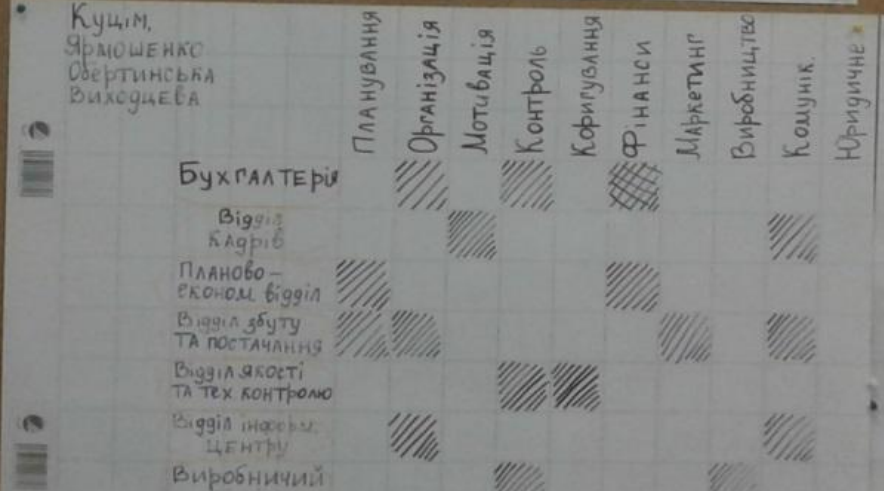 Куцім,
Ярмошенко
Обертинська
Виходцева
Планування
Організація
Мотивація
Контроль
Коригування
Фінанси
Маркетинг
Виробництво
Комунік.
Юридичне
Бухгалтерія
Відділ
кадрів
Планово-
економ. відділ
Відділ збуту
та постачання
Відділ якості
та тех. контролю
Відділ інформ.
центру
Виробничий